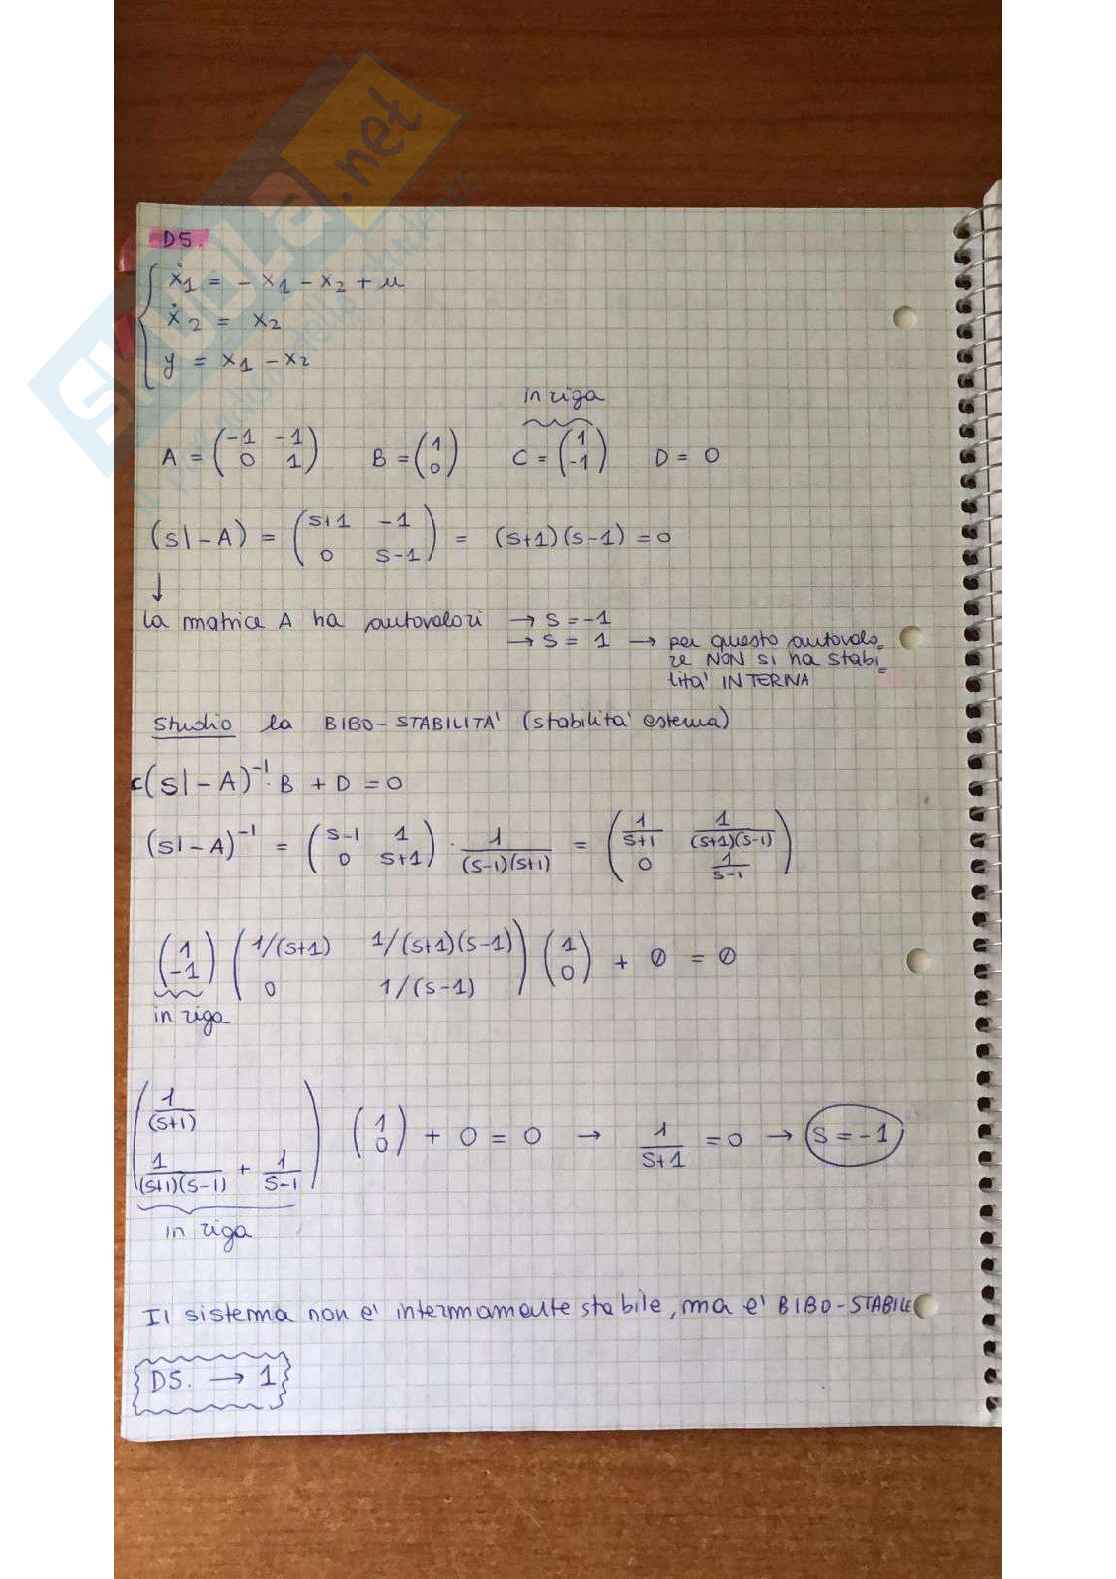 D5.
ẋ1 = - x1 - x2 + u
ẋ2 = x2
y = x1 - x2
in riga
A = (-1 -1 0 1) B = (1 0) C = (1 -1) D = 0
(sI - A) = (s+1 -1 0 s-1) = (s+1)(s-1) = 0
↓
la matrice A ha autovalori → s = -1
→ s = 1 → per questo autovalo=
re NON si ha stabi=
lita' INTERNA
Studio la BIBO-STABILITA' (stabilita' esterna)
C(sI - A)⁻¹ · B + D = 0
(sI - A)⁻¹ = (s-1 1 0 s+1) · 1/(s-1)(s+1) = (1/s+1 1/(s+1)(s-1) 0 1/s-1)
(1 -1) (1/(s+1) 1/(s+1)(s-1) 0 1/(s-1)) (1 0) + 0 = 0
in riga
(1/(s+1) 1/(s+1)(s-1) + 1/s-1) (1 0) + 0 = 0 → 1/s+1 = 0 → s = -1
in riga
Il sistema non e' internamente stabile, ma e' BIBO-STABILE
D5. → 1
SKUOLA.net